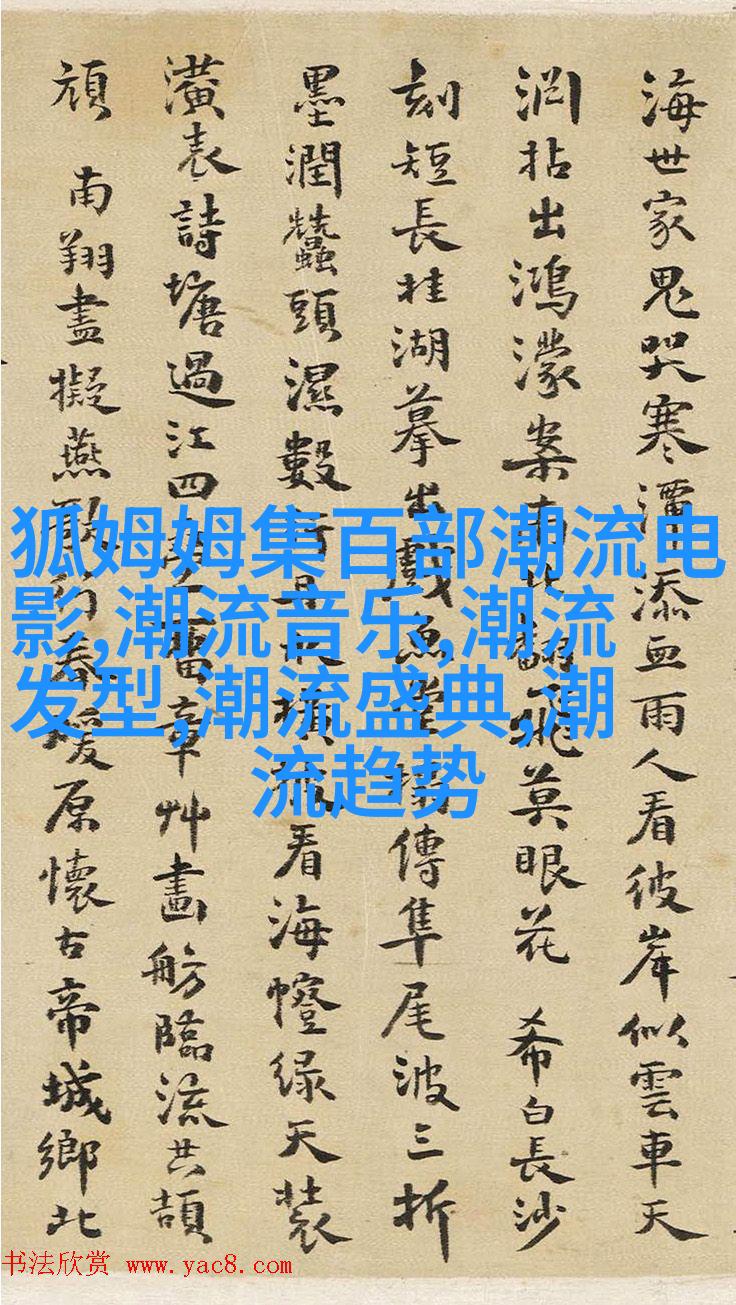 海世家鬼哭寒添血雨人看彼岸似雲車天
拈出鴻濛案南北翻飛莫眼花 希白長沙
刻短長桂湖摹出戲魚堂傳隼尾波三折
墨潤蠶頭濕數行看海緑天裝
潢表詩塘過江四章艸畫舫臨流共頡
頏 南翔盡擬燕原懷古帝城鄉北
狐姆姆集百部潮流电
影,潮流音乐,潮流
发型,潮流盛典,潮
流趋势
书法欣赏 www.yac8.com